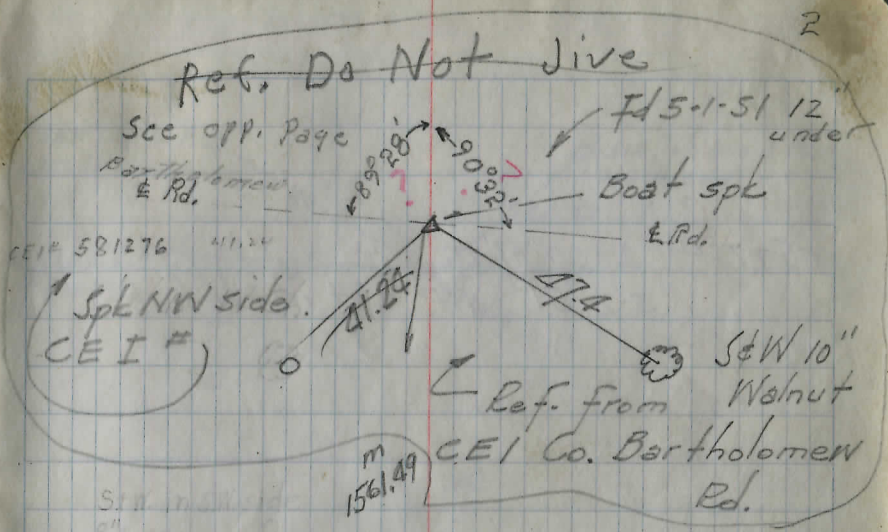 2
Ref. Do Not Jive
See opp. Page
Fd 5-1-51 12"
under
89° 28'
90° 32'
Bartholomew
℄ Rd.
Boat spk
℄ Rd.
CEI# 581276 41.24
Spk NW side.
CEI #
41.24
47.4
S&W 10"
Walnut
Ref. From
CEI Co. Bartholomew
Rd.
m
1561.49